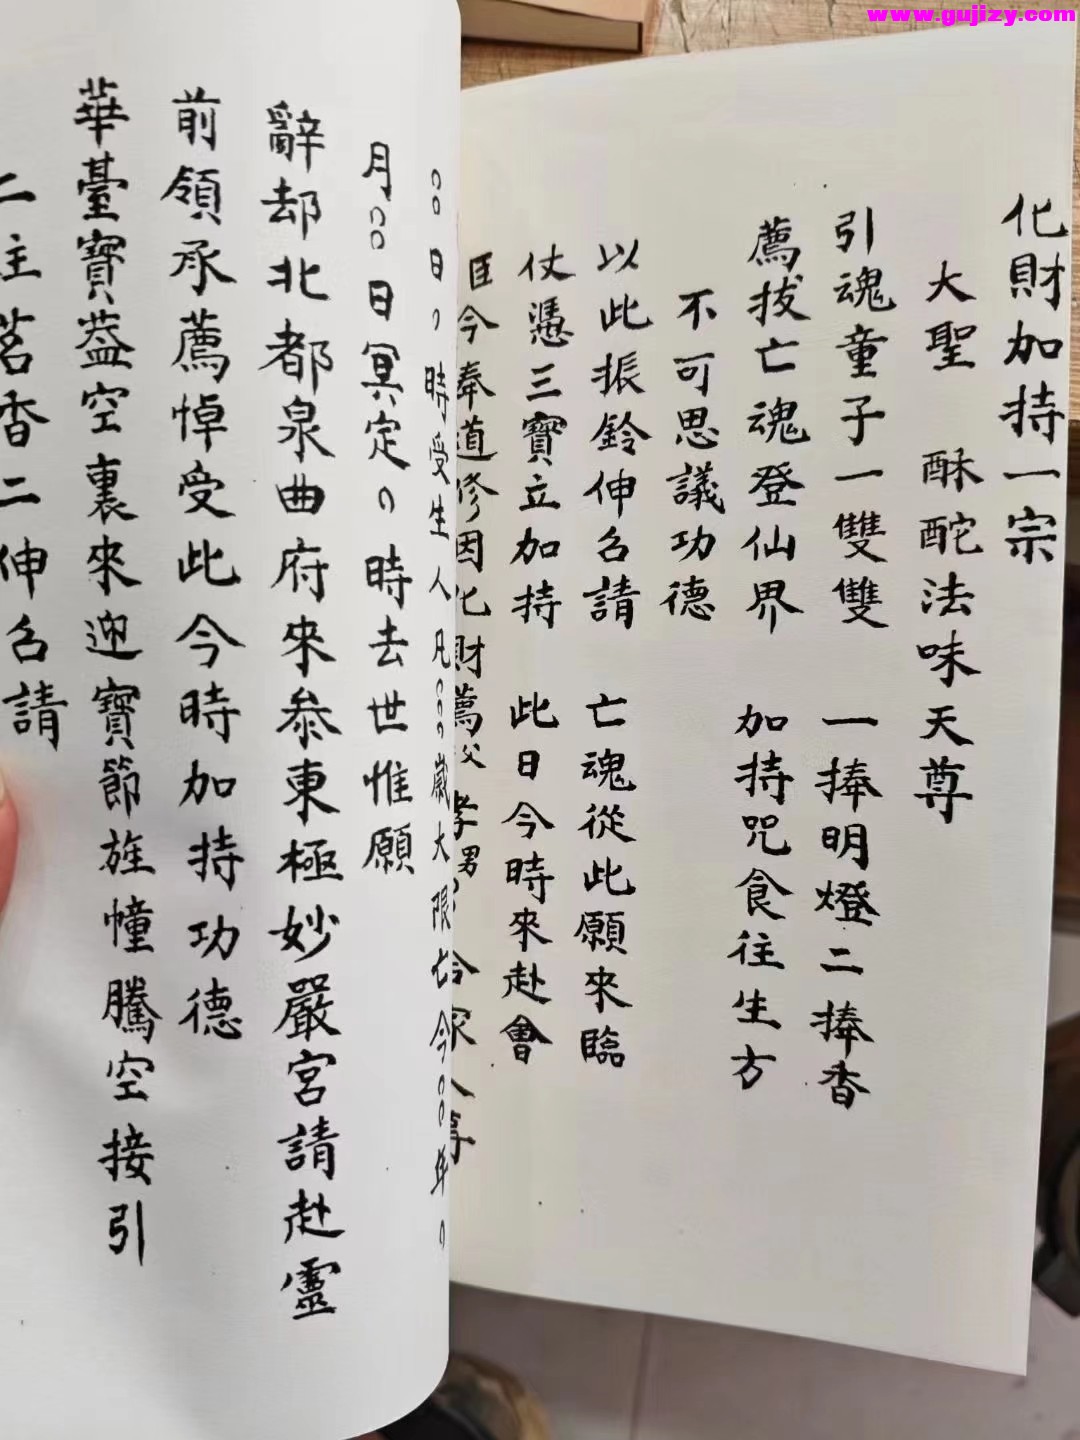 www.gujizy.com
化財加持一宗
大聖 酥酡法味天尊
引魂童子一雙雙 一捧明燈二捧香
薦拔亡魂登仙界 加持咒食往生方
不可思議功德
以此振鈴伸召請 亡魂從此願來臨
仗憑三寶立加持 此日今時來赴會
臣今奉道修因化財薦父 孝男 合家人等
○○日○時受生人凡○○○歲大限七今○○年○
月○○日冥定○時去世惟願
辭却北都泉曲府來叅東極妙嚴宮請赴靈
前領承薦悼受此今時加持功德
華臺寶葢空裏來迎寶節旌幢騰空接引
二主茗香二伸召請